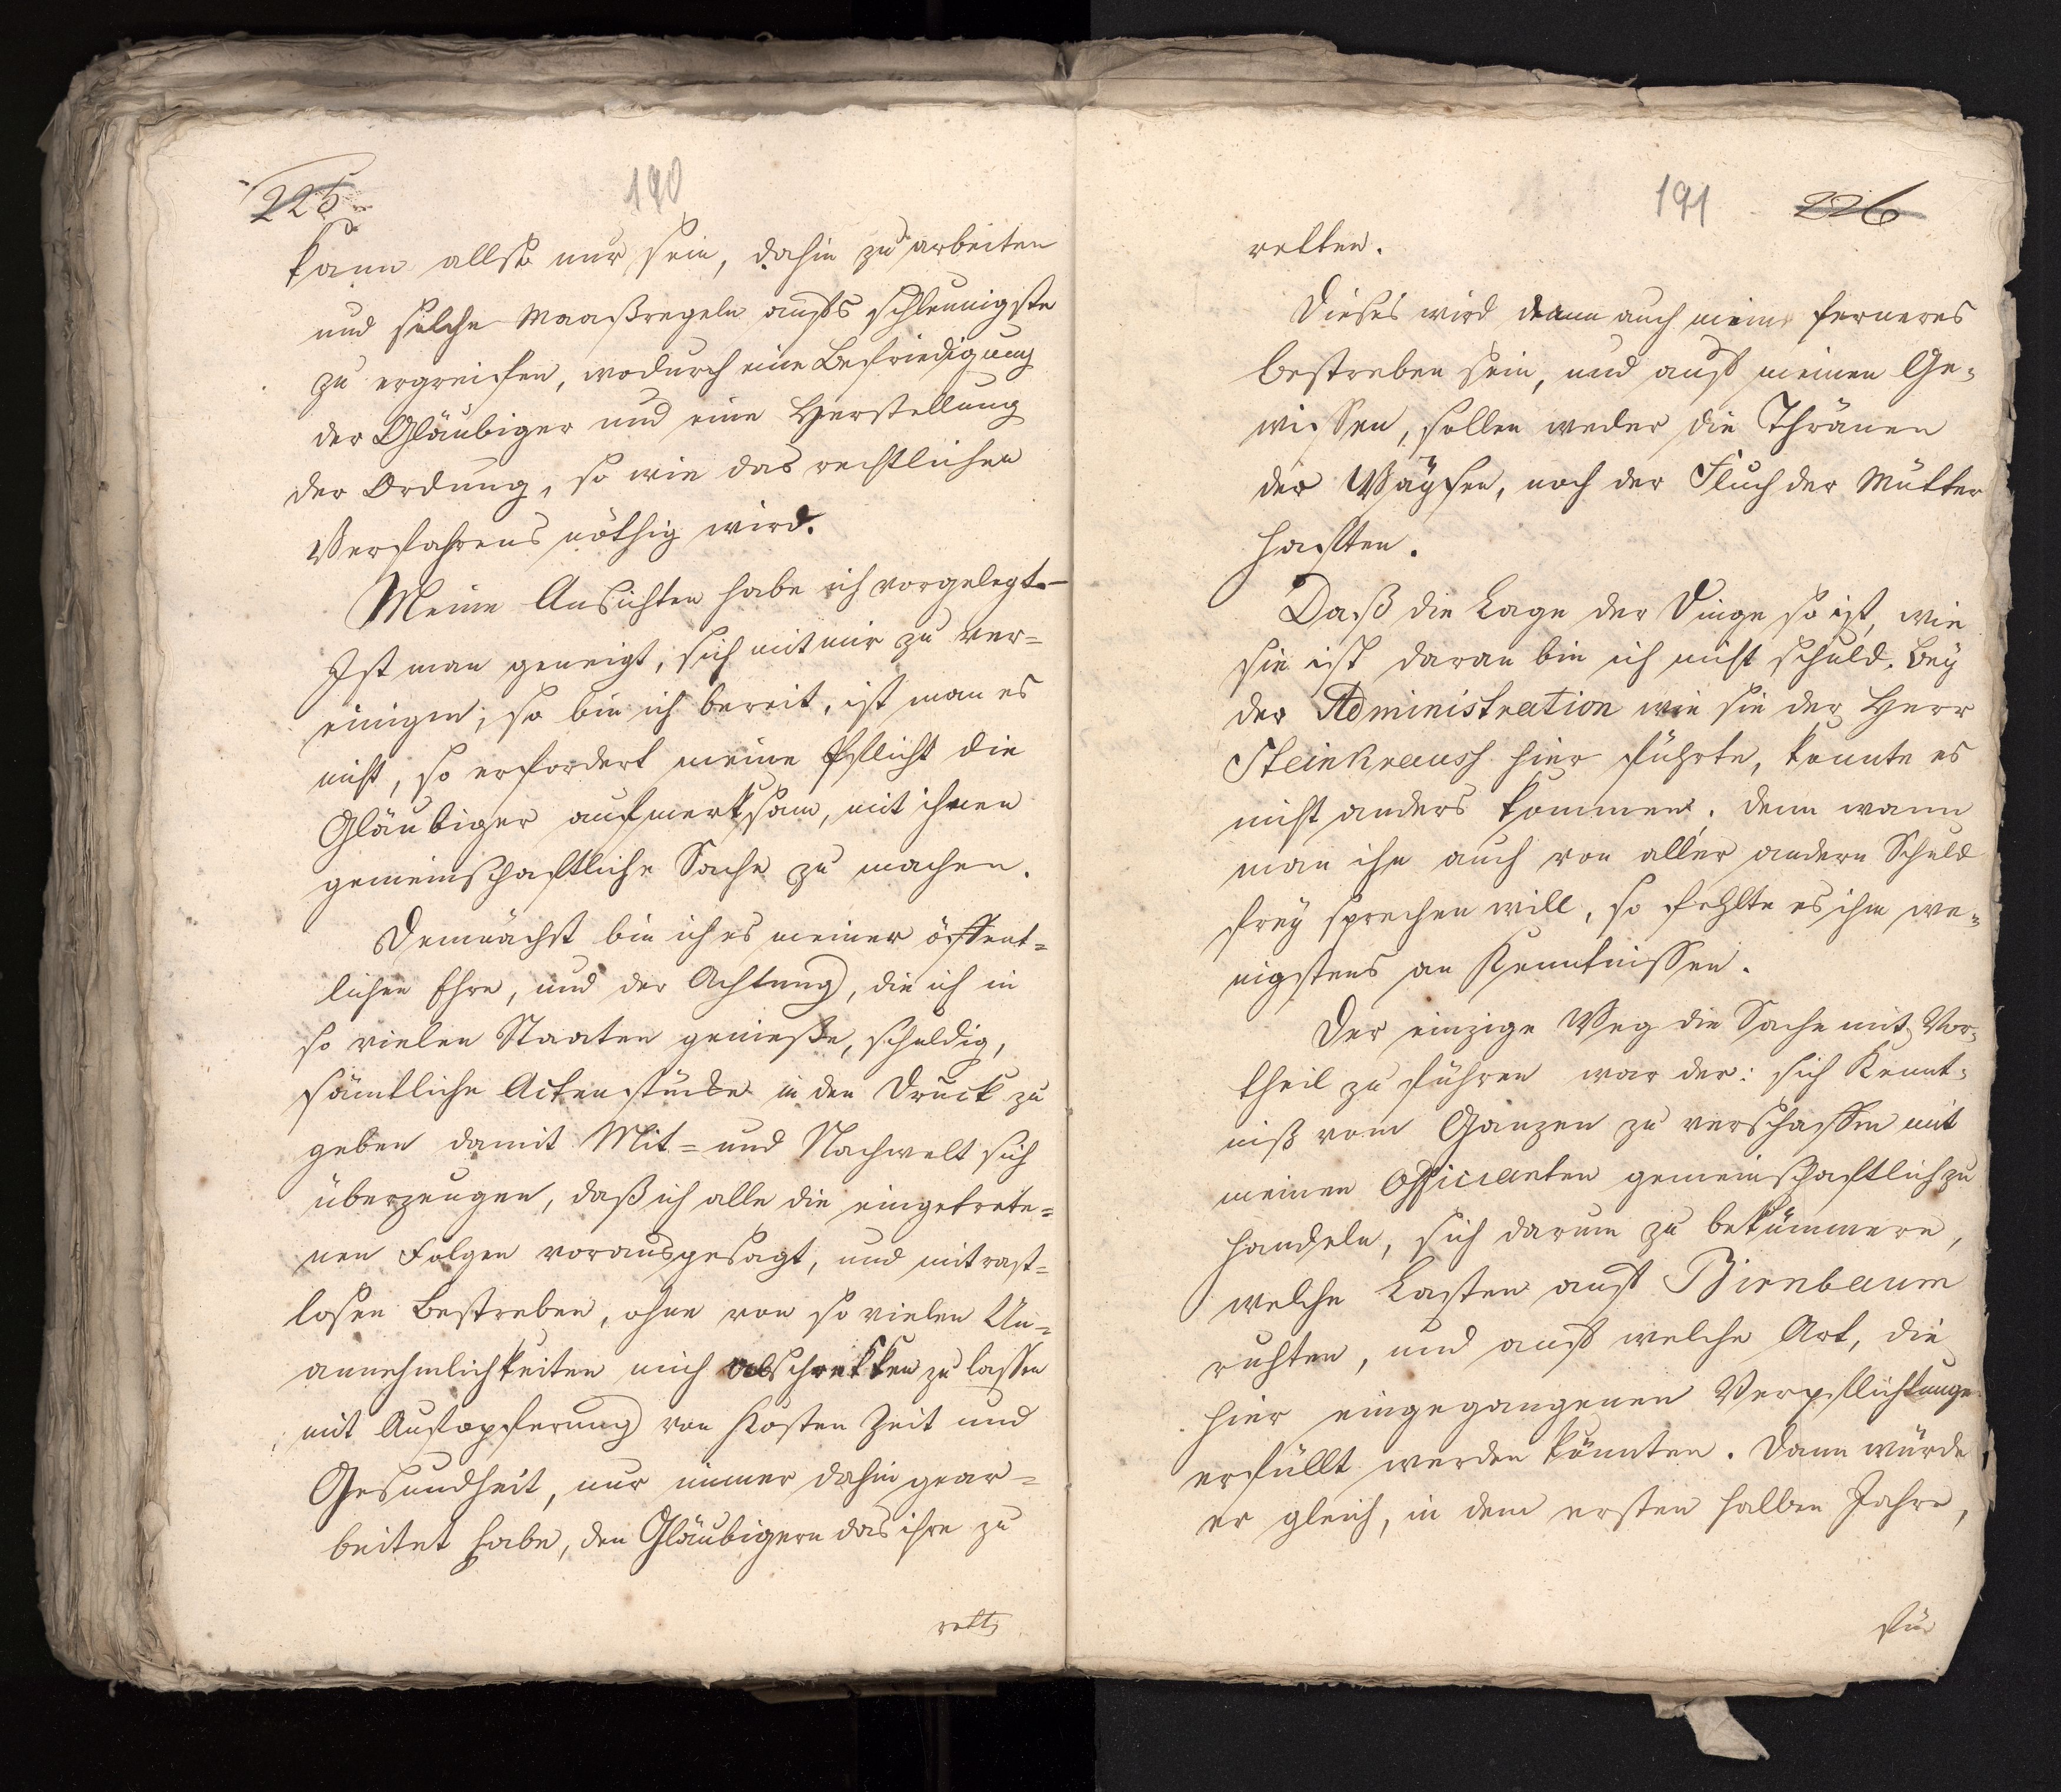 225
190
kann allso nur sein, dahin zu arbeiten
und solche Maaßregeln aufs schleunigste
zu ergreifen, wodurch eine Befriedigung
der Gläubiger und eine Herstellung
der Ordung, so wie das rechtlichen
Verfahrens nöthig wird.
Meine Ansichten habe ich vorgelegt.
Ist man geneigt, sich mit mir zu ver=
einigen, so bin ich bereit, ist man es
nicht, so erfordert meine Pflicht die
Gläubiger aufmerksam, mit ihnen
gemeinschaftliche Sache zu machen.
Demnächst bin ich es meiner öffent=
lichen Ehre, und der Achtung, die ich in
so vielen Staaten genieße, schuldig,
sämtliche Acktenstücke in den Druck zu
geben damit Mit= und Nachwelt sich
überzeugen, daß ich alle die eingetrete=
nen Folgen vorausgesagt, und mit rast=
losen Bestreben, ohne von so vielen Un=
annehmlichkeiten mich abschrekken zu lassen
mit Aufopferung von Kosten Zeit und
Gesundheit, nur immer dahin gear=
beitet habe, den Gläubigern das ihre zu
rett
191
226
retten.
Dieses wird denn auch mein ferneres
bestreben sein, und auf meinen Ge=
wissen, sollen weder die Thränen
der Waÿsen, noch der Fluch der Mütter
haften.
Daß die Lage der Dinge so ist, wie
sie ist daran bin ich nicht schuld. Beÿ
der Administration wie sie der Herr
Steinkraush hier führte, konnte es
nicht anders kommen. denn wann
man ihn auch von aller andern Schuld
freÿ sprechen will, so fehlte es ihm we=
nigstens an Kenntnissen.
Der einzige Weg die Sache mit Vor=
theil zu führen war der: sich Kennt=
niß vom Ganzen zu verschaffen mit
meinen Officianten gemeinschaftlich zu
handeln, sich darum zu bekümmern,
welche Lasten auf Birnbaum
ruhten, und auf welche Art, die
hier eingegangenen Verpflichtunge
erfüllt werden könnten. Dann würde
er gleich, in dem ersten halben Jahre,
für